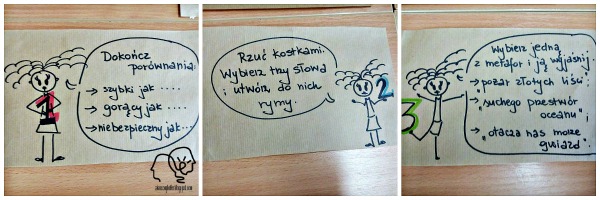 Dokończ
porównania:
→ szybki jak ....
→ gorący jak ....
→ niebezpieczny jak...
1
Rzuć kostkami.
Wybierz trzy słowa
i utwórz do nich
rymy.
2
Wybierz jedną
z metafor i ją wyjaśnij:
→ "pożar złotych liści";
→ "suchego przestwór
oceanu";
→ "otacza nas morze
gwiazd".
3